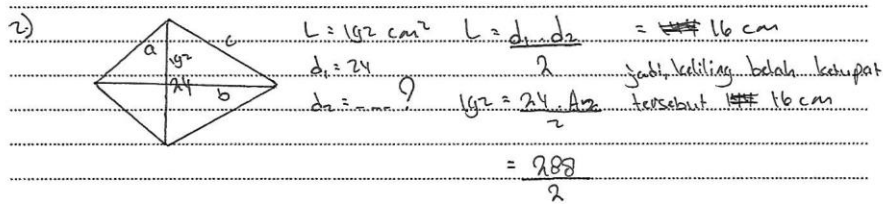 2)
a
c
192
24
b
L = 192 cm²
d₁ = 24
d₂ = ---- ?
L = d₁ . d₂ / 2
192 = 24 . / 2
= 288 / 2
= 16 cm
jadi, keliling belah ketupat
tersebut 16 cm